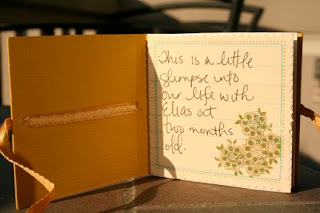 This is a little
glimpse into
our life with
Elias at
two months
old.